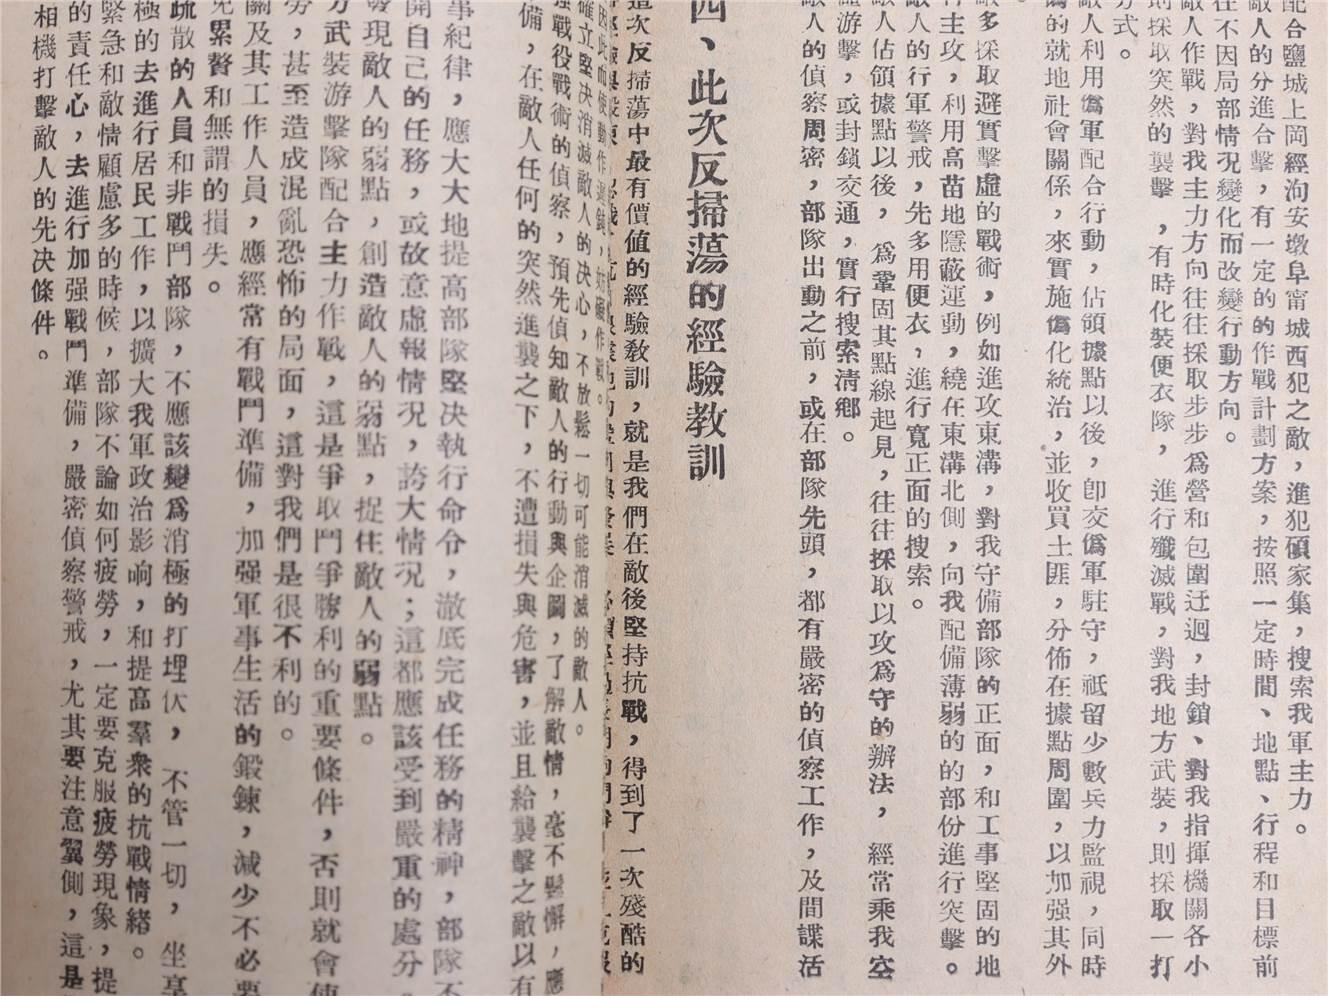 配合鹽城上岡經洵安墩阜甯城西犯之敵，進犯碩家集，搜索我軍主力。
敵人的分進合擊，有一定的的作戰計劃方案，按照一定時間、地點、行程和目標前
在不因局部情况變化而改變行動方向。
敵人作戰，對我主力方向往往採取步步爲營和包圍迂迴，封鎖、對我指揮機關各小
則採取突然的襲擊，有時化裝便衣隊，進行殲滅戰，對我地方武裝，則採取一打
方式。
敵人利用僞軍配合行動，佔領據點以後，卽交僞軍駐守，祇留少數兵力監視，同時
僞的就地社會關係，來實施僞化統治，並收買土匪，分佈在據點周圍，以加强其外
敵多採取避實擊虛的戰術，例如進攻東溝，對我守備部隊的正面，和工事堅固的地
主攻，利用高苗地隱蔽運動，繞在東溝北側，向我配備薄弱的的部份進行突擊。
敵人的行軍警戒，先多用便衣，進行寬正面的搜索。
敵人佔領據點以後，爲鞏固其點線起見，往往採取以攻爲守的辦法，經常乘我空
游擊，或封鎖交通，實行搜索淸鄉。
敵人的偵察周密，部隊出動之前，或在部隊先頭，都有嚴密的偵察工作，及間諜活
四、此次反掃蕩的經驗教訓
這次反掃蕩中最有價值的經驗敎訓，就是我們在敵後堅持抗戰，得到了一次殘酷的
確立堅決消滅敵人的决心，不放鬆一切可能消滅的敵人。
强戰役戰術的偵察，預先偵知敵人的行動與企圖，了解敵情，毫不鬆懈，應
備，在敵人任何的突然進襲之下，不遭損失與危害，並且給襲擊之敵以有
事紀律，應大大地提高部隊堅决執行命令，澈底完成任務的精神，部隊不
開自己的任務，或故意虛報情况，誇大情况；這都應該受到嚴重的處分。
發現敵人的弱點，創造敵人的弱點，捉住敵人的弱點。
方武裝游擊隊配合主力作戰，這是爭取鬥爭勝利的重要條件，否則就會使
勞，甚至造成混亂恐怖的局面，這對我們是很不利的。
關及其工作人員，應經常有戰鬥準備，加强軍事生活的鍛鍊，減少不必要
累贅和無謂的損失。
疏散的人員和非戰鬥部隊，不應該變爲消極的打埋伏，不管一切，坐享
極的去進行居民工作，以擴大我軍政治影响，和提高羣衆的抗戰情緒。
緊急和敵情顧慮多的時候，部隊不論如何疲勞，一定要克服疲勞現象，提
的責任心，去進行加强戰鬥準備，嚴密偵察警戒，尤其要注意翼側，這是
相機打擊敵人的先决條件。